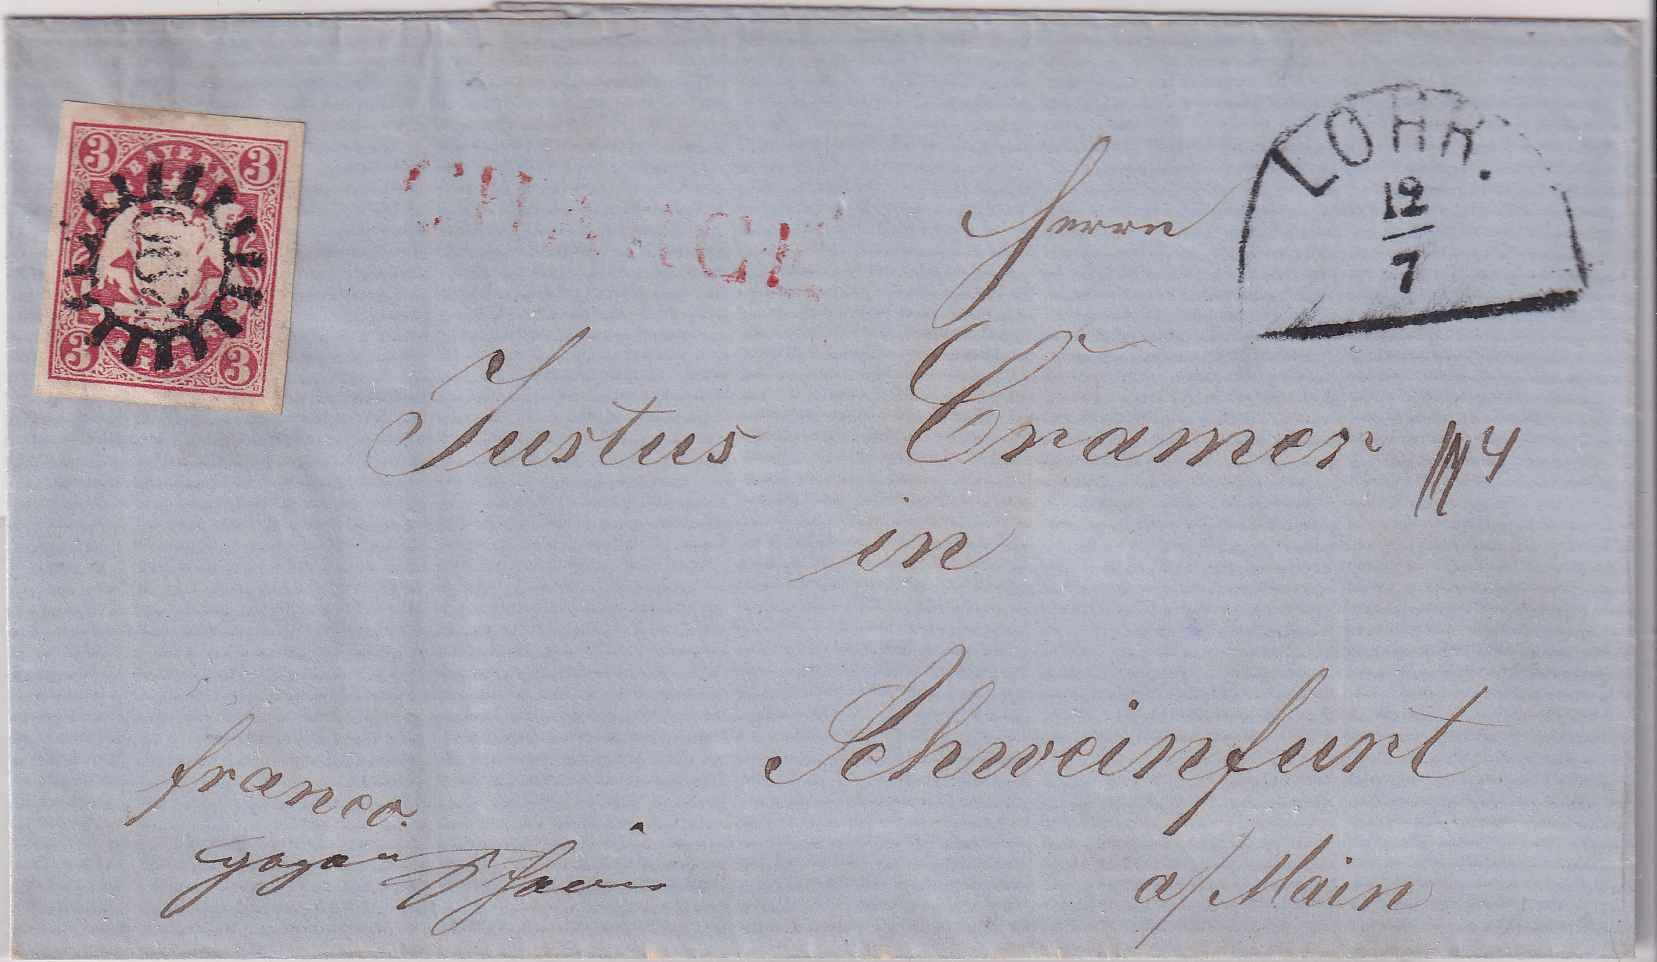 3 3
BAYERN
3 3
CHARGÉ
LOHR.
12
7
Herrn
Justus Cramer
4
in
Schweinfurt
a/Main
franco.
gegen Schein